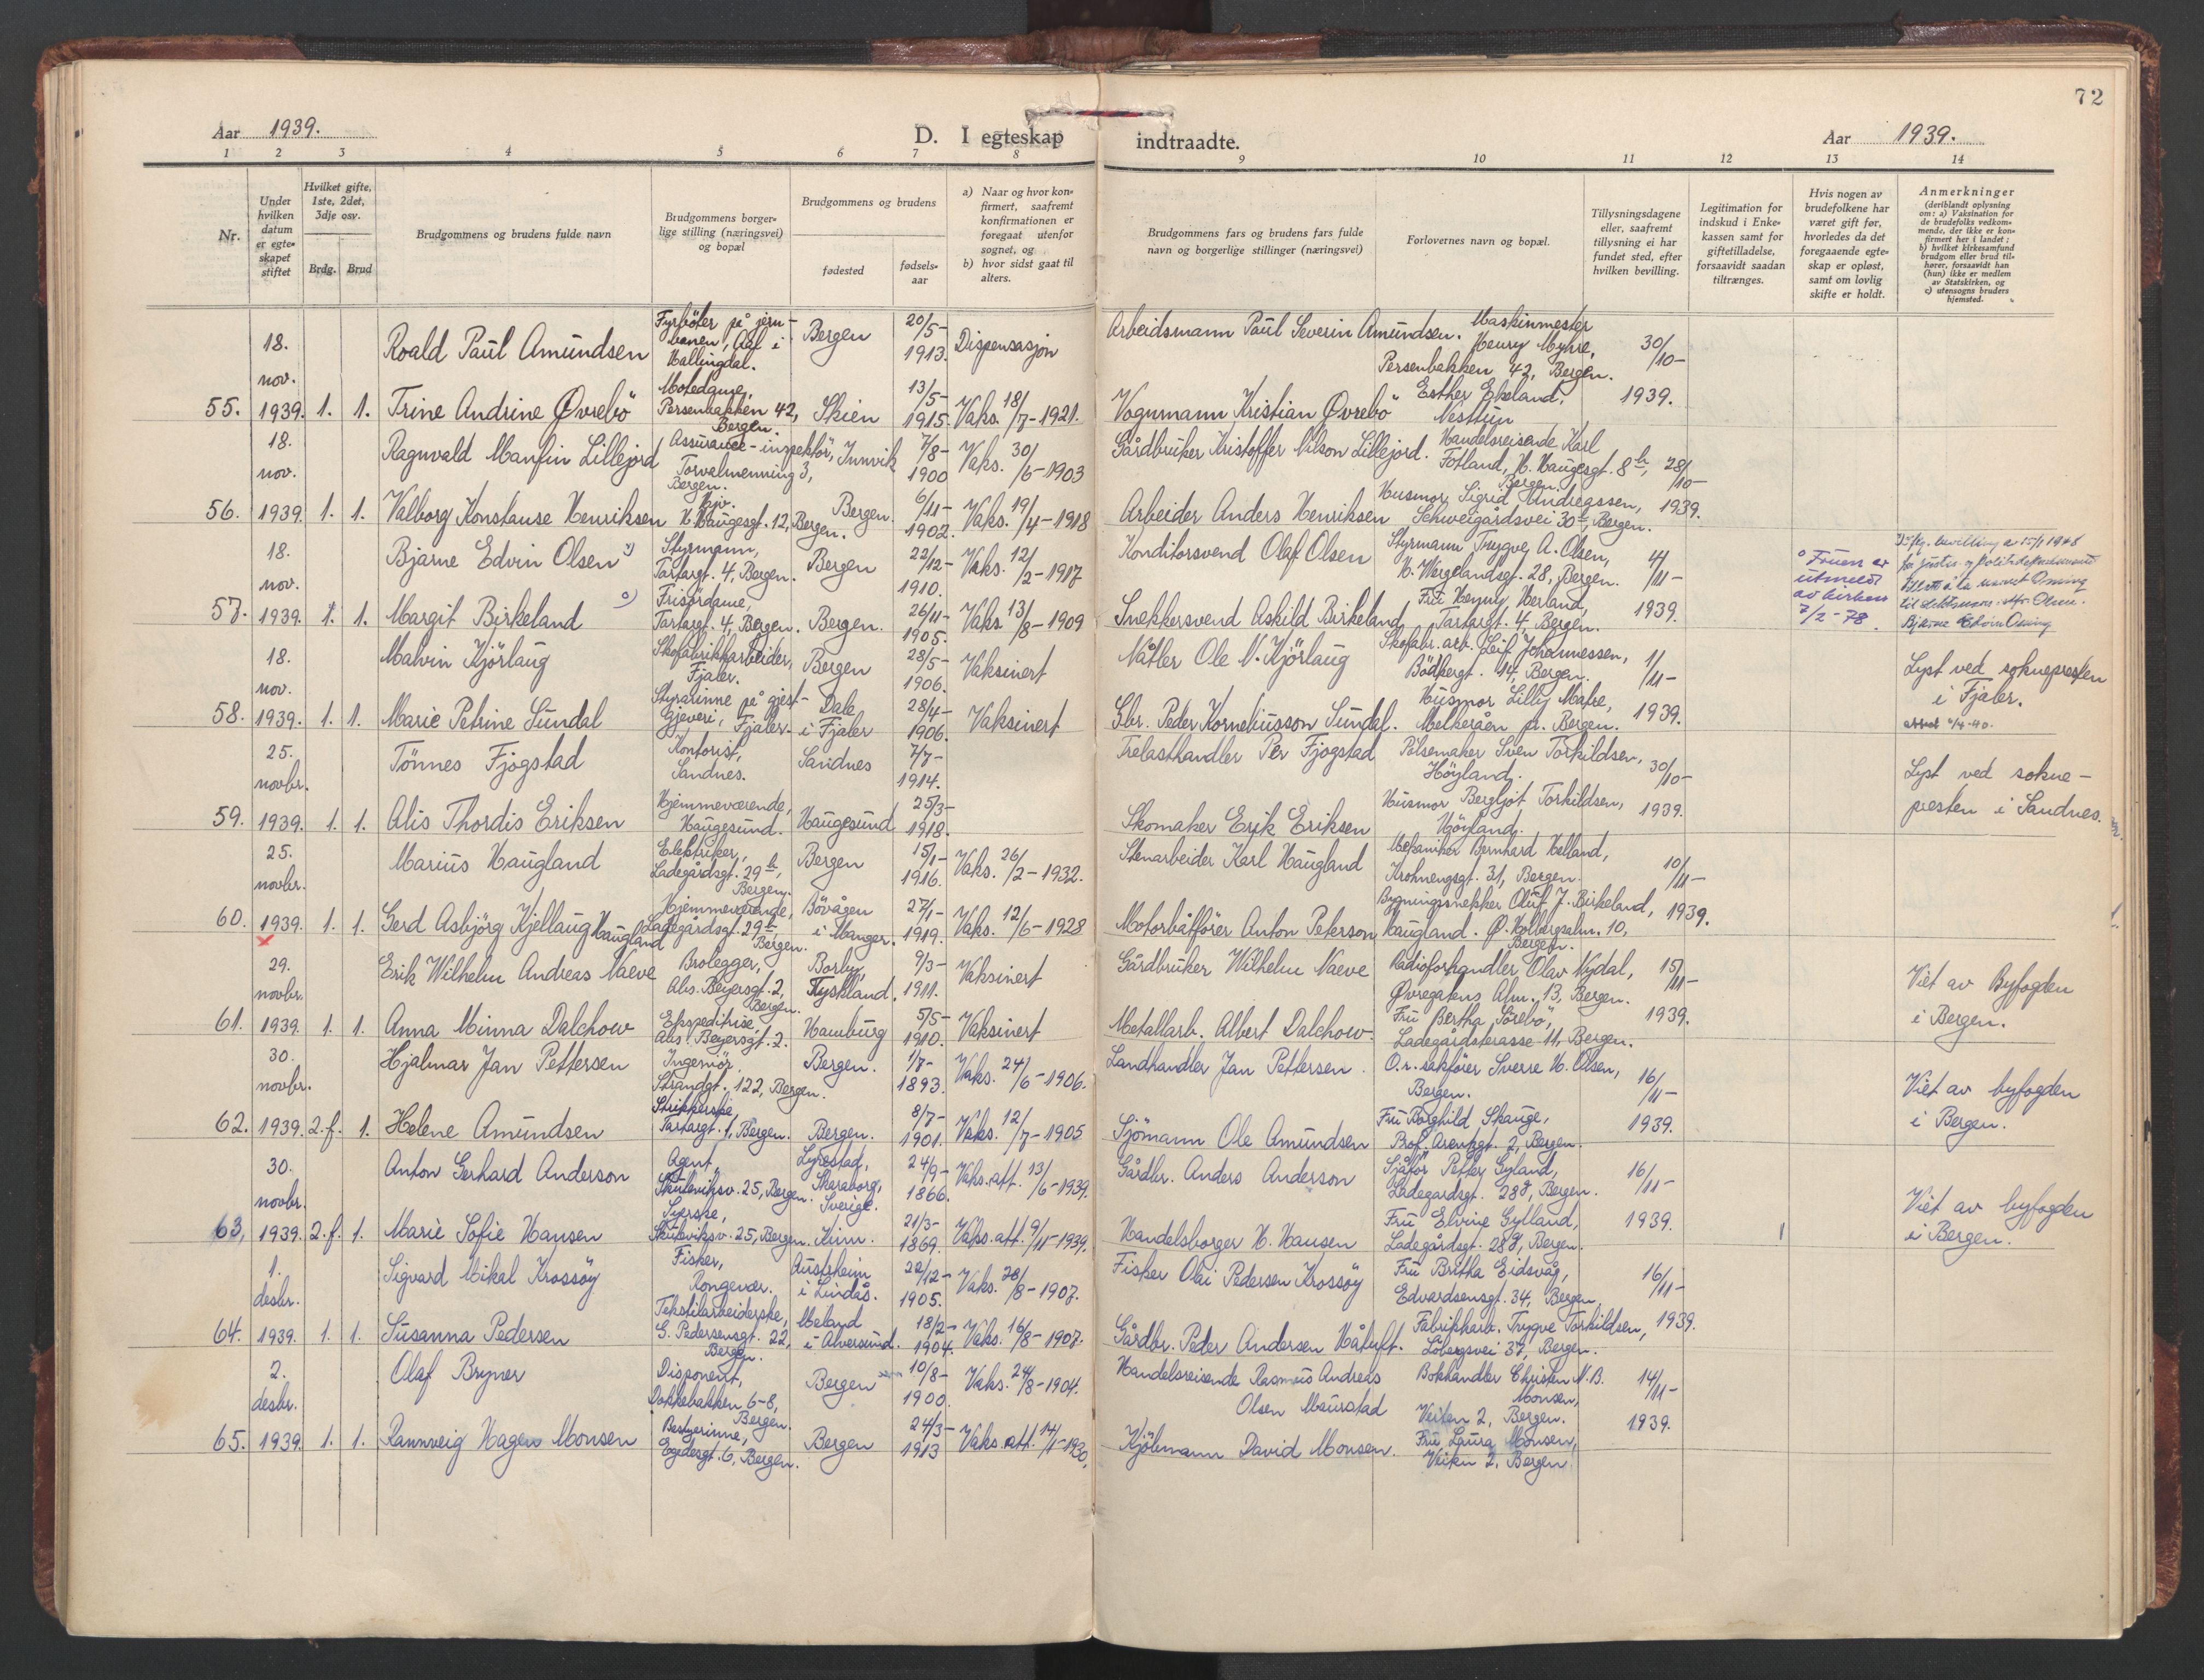 72
Aar 1939.
D. I egteskap indtraadte.
Aar 1939.
1 2 3 4 5 6 7 8 9 10 11 12 13 14
Nr.
Under hvilken datum er egteskapet stiftet
Hvilket gifte, 1ste, 2det, 3dje osv.
Brdg. Brud
Brudgommens og brudens fulde navn
Brudgommens borgerlige stilling (næringsvei) og bopæl
Brudgommens og brudens
fødested
fødselsaar
a) Naar og hvor konfirmert, saafremt konfirmationen er foregaat utenfor sognet, og
b) hvor sidst gaat til alters.
Brudgommens fars og brudens fars fulde navn og borgerlige stillinger (næringsvei)
Forlovernes navn og bopæl.
Tillysningsdagene eller, saafremt tillysning ei har fundet sted, efter hvilken bevilling.
Legitimation for indskud i Enkekassen samt for giftetilladelse, forsaavidt saadan tiltrænges.
Hvis nogen av brudefolkene har været gift før, hvorledes da det foregaaende egteskap er opløst, samt om lovlig skifte er holdt.
Anmerkninger (deriblandt oplysning om: a) Vaksination for de brudefolks vedkommende, der ikke er konfirmert her i landet; b) hvilket kirkesamfund brudgom eller brud tilhører, forsaavidt han (hun) ikke er medlem av Statskirken, og c) utensogns bruders hjemsted.
55. 18. nov. 1939. 1. 1.
Roald Paul Amundsen Fyrböter på jernbanen, Aal i Hallingdal. Bergen 20/5-1913. Dispensasjon
Arbeidsmann Paul Severin Amundsen. Maskinmester Henry Myhre, Persenbakken 42, Bergen. 30/10-1939.
Trine Andrine Øvrebö Motedame, Persenbakken 42, Bergen. Skien 13/5-1915. Vaks. 18/7-1921.
Vognmann Kristian Øvrebö Esther Ekeland, Nesttun
56. 18. nov. 1939. 1. 1.
Ragnvald Manfin Lillejord Assurance-inspektör, Torvalmenning 3, Bergen. Innvik 7/8-1900 Vaks. 30/6-1903
Gårdbruker Kristoffer Nilson Lillejord. Handelsreisende Karl Fotland, H. Haugesgt. 8 b, Bergen. 28/10-1939.
Valborg Konstanse Henriksen Hjv. H. Haugesgt. 12, Bergen. Bergen. 6/11-1902. Vaks. 19/4-1918
Arbeider Anders Henriksen Husmor Sigrid Andreassen, Schweigårdsvei 30, Bergen.
57. 18. nov. 1939. 1. 1.
Bjarne Edvin Olsen Styrmann, Tartargt. 4, Bergen. Bergen 22/12-1910. Vaks. 12/2-1917
Konditorsvend Olaf Olsen Styrmann Trygve A. Olsen, H. Wergelandsgt. 28, Bergen. 4/11-1939.
Margit Birkeland o) Frisördame, Tartargt. 4, Bergen. Bergen. 26/11-1905. Vaks 13/8-1909
Snekkersvend Askild Birkeland Fru Henny Herland, Tartargt. 4, Bergen.
o Fruen er utmeldt av kirken 7/2-78.
58. 18. nov. 1939. 1. 1.
Malvin Kjörlaug Skofabrikkarbeider, Fjaler. Bergen 28/5-1906. Vaksinert
Nåtler Ole N. Kjörlaug Skofabr. arb. Leif Johannessen, Bödkergt. 14, Bergen. 1/11-1939.
Marie Petrine Sundal Styrarinne på gjestgjeveri, Fjaler. Dale i Fjaler 28/4-1906. Vaksinert
Gbr. Peder Korneliusson Sundal. Husmor Lilly Matre, Melkeråen pr. Bergen.
Lyst ved soknepresten i Fjaler.
59. 25. novbr. 1939. 1. 1.
Tönnes Fjogstad Kontorist, Sandnes. Sandnes 7/7-1914.
Trelasthandler Per Fjogstad Pölsemaker Sven Torkildsen, Höyland. 30/10-1939.
Alis Thordis Eriksen Hjemmeværende, Haugesund. Haugesund 25/3-1918.
Skomaker Erik Eriksen Husmor Bergljot Torkildsen, Höyland.
Lyst ved soknepresten i Sandnes.
60. 25. novbr. 1939. 1. 1.
Marius Haugland Elektriker, Ladegårdsgt. 29 b, Bergen. Bergen 15/1-1916. Vaks. 26/2-1932.
Stenarbeider Karl Haugland Mekaniker Bernhard Helland, Krohnengsgt. 31, Bergen. 10/11-1939.
Gerd Asbjörg Kjellaug Haugland Hjemmeværende, Ladegårdsgt. 29 b, Bergen. Bövågen i Manger. 27/1-1919. Vaks. 12/6-1928
Motorbåtförer Anton Peterson Haugland. Bygningssnekker Oluf J. Birkeland, Ø. Holbergsalm. 10, Bergen.
61. 29. novbr. 1939. 1. 1.
Erik Wilhelm Andreas Naeve Brolegger, Abs. Beyersgt. 2, Bergen. Borby, Tyskland. 9/3-1911. Vaksinert
Gårdbruker Wilhelm Naeve Radioforhandler Olav Nydal, Øvregatens Alm. 13, Bergen. 15/11-1939.
Anna Minna Dalchow Ekspeditrise, Abs. Beyersgt. 2. Hamburg 5/5-1910. Vaksinert
Metallarb. Albert Dalchow. Fru Bertha Sörebö, Ladegårdsterasse 11, Bergen.
Viet av Byfogden i Bergen.
62. 30. novbr. 1939. 2.f. 1.
Hjalmar Jan Pettersen Ingeniör, Strandgt. 122, Bergen. Bergen. 1/7-1893. Vaks. 24/6-1906.
Landhandler Jan Pettersen. O.r. sakförer Sverre H. Olsen, Bergen. 16/11-1939.
Helene Amundsen Strikkerske, Tartargt. 1, Bergen. Bergen. 8/7-1901. Vaks. 12/7-1905
Sjömann Ole Amundsen Fru Borghild Skauge, Prof. Arentzgt. 2, Bergen.
Viet av byfogden i Bergen.
63. 30. novbr. 1939. 2.f. 1.
Anton Gerhard Anderson Agent Skuteviksv. 25, Bergen. Lyrestad, Skaraborg, Sverige. 24/9-1866. Vaks. att. 13/6-1939.
Gårdbr. Anders Anderson Sjåför Petter Gyland, Ladegårdsgt. 28 d, Bergen. 16/11-1939.
Marie Sofie Hansen Syerske, Skuteviksv. 25, Bergen. Kinn. 21/3-1869. Vaks. att. 9/11-1939.
Handelsborger H. Hansen Fru Elvine Gylland, Ladegårdsgt. 28 d, Bergen.
Viet av byfogden i Bergen.
64. 1. desbr. 1939. 1. 1.
Sigvard Mikal Krossöy Fisker, Rongevær. Austrheim i Lindås. 22/12-1905. Vaks. 28/8-1907.
Fisker Olai Pedersen Krossöy Fru Britha Eidsvåg, Edvardsensgt. 34, Bergen. 16/11-1939.
Susanna Pedersen Tekstilarbeiderske, G. Pedersensgt. 22, Bergen. Meland i Alversund. 18/2-1904. Vaks. 16/8-1907.
Gårdbr. Peder Andersen Håtuft. Fabrikkarb. Trygve Torkildsen, Löbergsvei 37, Bergen.
65. 2. desbr. 1939. 1. 1.
Olaf Bryner Disponent, Dokkebakken 6-8, Bergen. Bergen 10/8-1900. Vaks. 24/8-1904.
Handelsreisende Rasmus Andreas Olsen Maurstad Bokhandler Christen N.B. Monsen, Veiten 2, Bergen. 14/11-1939.
Rannveig Hagen Monsen Bestyerinne, Egedesgt. 6, Bergen. Bergen 24/3-1913 Vaks. att. 14/1-1930.
Kjöbmann David Monsen. Fru Laura Monsen, Veiten 2, Bergen